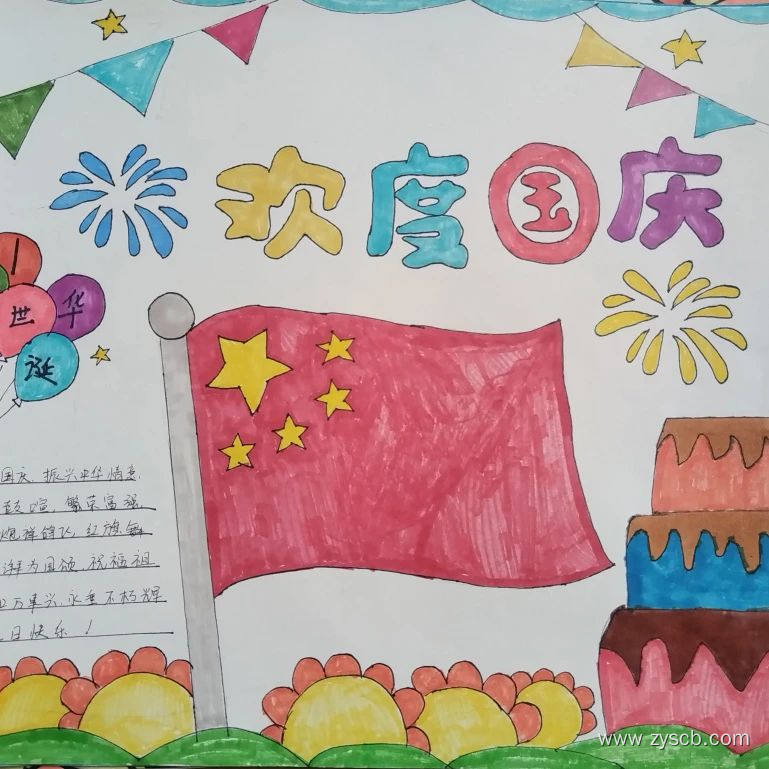 欢度国庆
世华
诞
国庆、振兴中华情
喧、繁荣富强
炮祥鸽飞、红旗舞
湃为国颂、祝福祖
万事兴、永垂不朽辉
日快乐！
www.zyscb.com